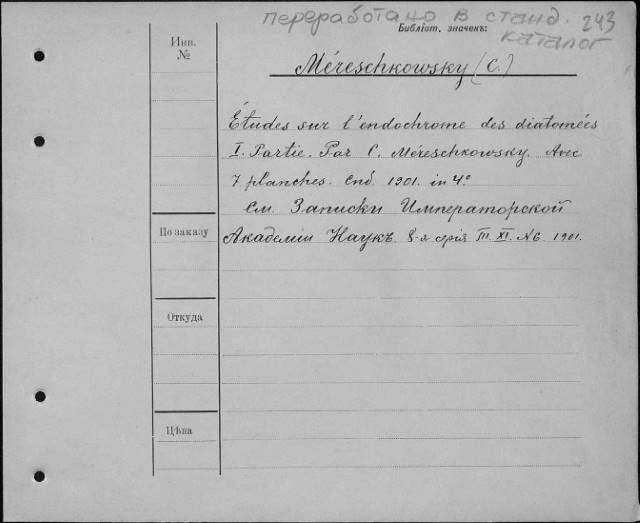 переработано в станд. 243
каталог
Библіот. значекъ:
Инв.
№
Méreschkowsky (C.)
Études sur l'endochrome des diatomées
I. Partie. Par C. Méreschkowsky. Avec
7 planches. 1901. in 4º
См. Записки Императорской
Академіи Наукъ 8-я серія Т. XI. № 6 1901.
По заказу
Откуда
Цѣна